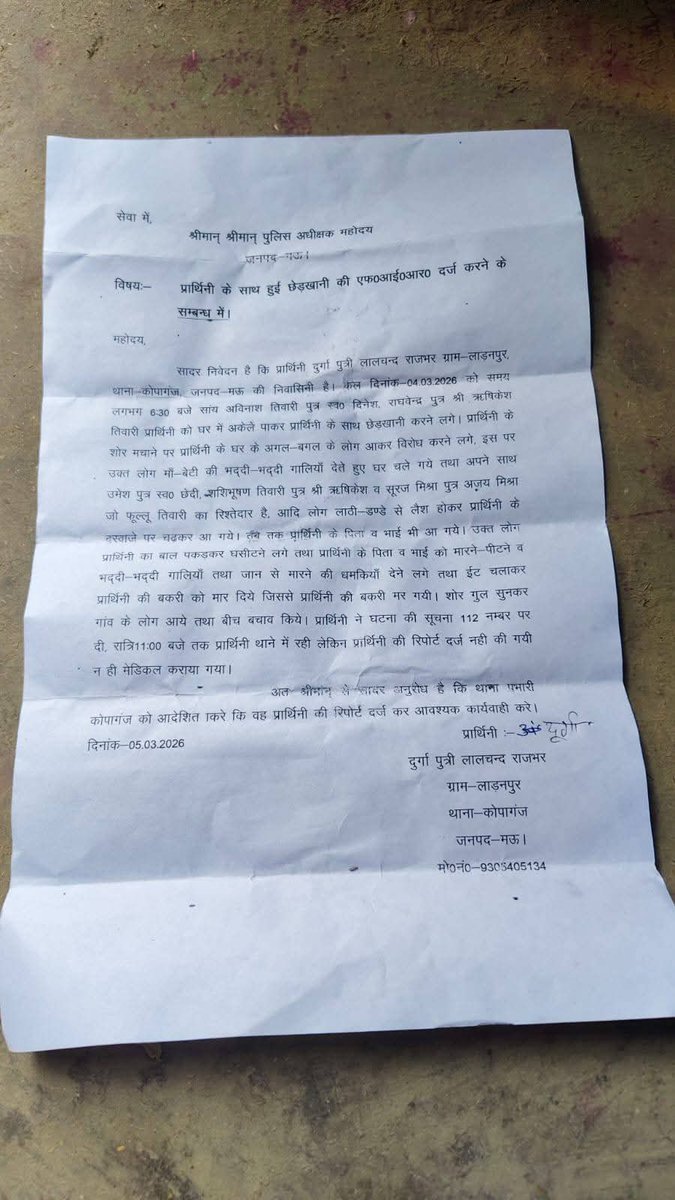 सेवा में,
श्रीमान् श्रीमान् पुलिस अधीक्षक महोदय
जनपद–मऊ।
विषयः– प्रार्थिनी के साथ हुई छेड़खानी की एफ0आई0आर0 दर्ज करने के
सम्बन्ध में।
महोदय,
सादर निवेदन है कि प्रार्थिनी दुर्गा पुत्री लालचन्द राजभर ग्राम–लाड़नपुर,
थाना–कोपागंज, जनपद–मऊ की निवासिनी है। कल दिनांक–04.03.2026 को समय
लगभग 6:30 बजे सांय अविनाश तिवारी पुत्र स्व0 दिनेश, राघवेन्द्र पुत्र श्री ऋषिकेश
तिवारी प्रार्थिनी को घर में अकेले पाकर प्रार्थिनी के साथ छेड़खानी करने लगे। प्रार्थिनी के
शोर मचाने पर प्रार्थिनी के घर के अगल–बगल के लोग आकर विरोध करने लगे, इस पर
उक्त लोग माँ–बेटी की भद्दी–भद्दी गालियाँ देते हुए घर चले गये तथा अपने साथ
उमेश पुत्र स्व0 छेदी, शशिभूषण तिवारी पुत्र श्री ऋषिकेश व सूरज मिश्रा पुत्र अजय मिश्रा
जो फूल्लू तिवारी का रिश्तेदार है, आदि लोग लाठी–डण्डे से लैश होकर प्रार्थिनी के
दरवाजे पर चढकर आ गये। तब तक प्रार्थिनी के पिता व भाई भी आ गये। उक्त लोग
प्रार्थिनी का बाल पकड़कर घसीटने लगे तथा प्रार्थिनी के पिता व भाई को मारने–पीटने व
भद्दी–भद्दी गालियाँ तथा जान से मारने की धमकियाँ देने लगे तथा ईट चलाकर
प्रार्थिनी की बकरी को मार दिये जिससे प्रार्थिनी की बकरी मर गयी। शोर गुल सुनकर
गांव के लोग आये तथा बीच बचाव किये। प्रार्थिनी ने घटना की सूचना 112 नम्बर पर
दी, रात्रि11:00 बजे तक प्रार्थिनी थाने में रही लेकिन प्रार्थिनी की रिपोर्ट दर्ज नही की गयी
न ही मेडिकल कराया गया।
अतः श्रीमान् से सादर अनुरोध है कि थाना प्रभारी
कोपागंज को आदेशित करे कि वह प्रार्थिनी की रिपोर्ट दर्ज कर आवश्यक कार्यवाही करे।
दिनांक–05.03.2026
प्रार्थिनी :– दूर्गा
दुर्गा पुत्री लालचन्द राजभर
ग्राम–लाड़नपुर
थाना–कोपागंज
जनपद–मऊ।
मो0नं0–9305405134